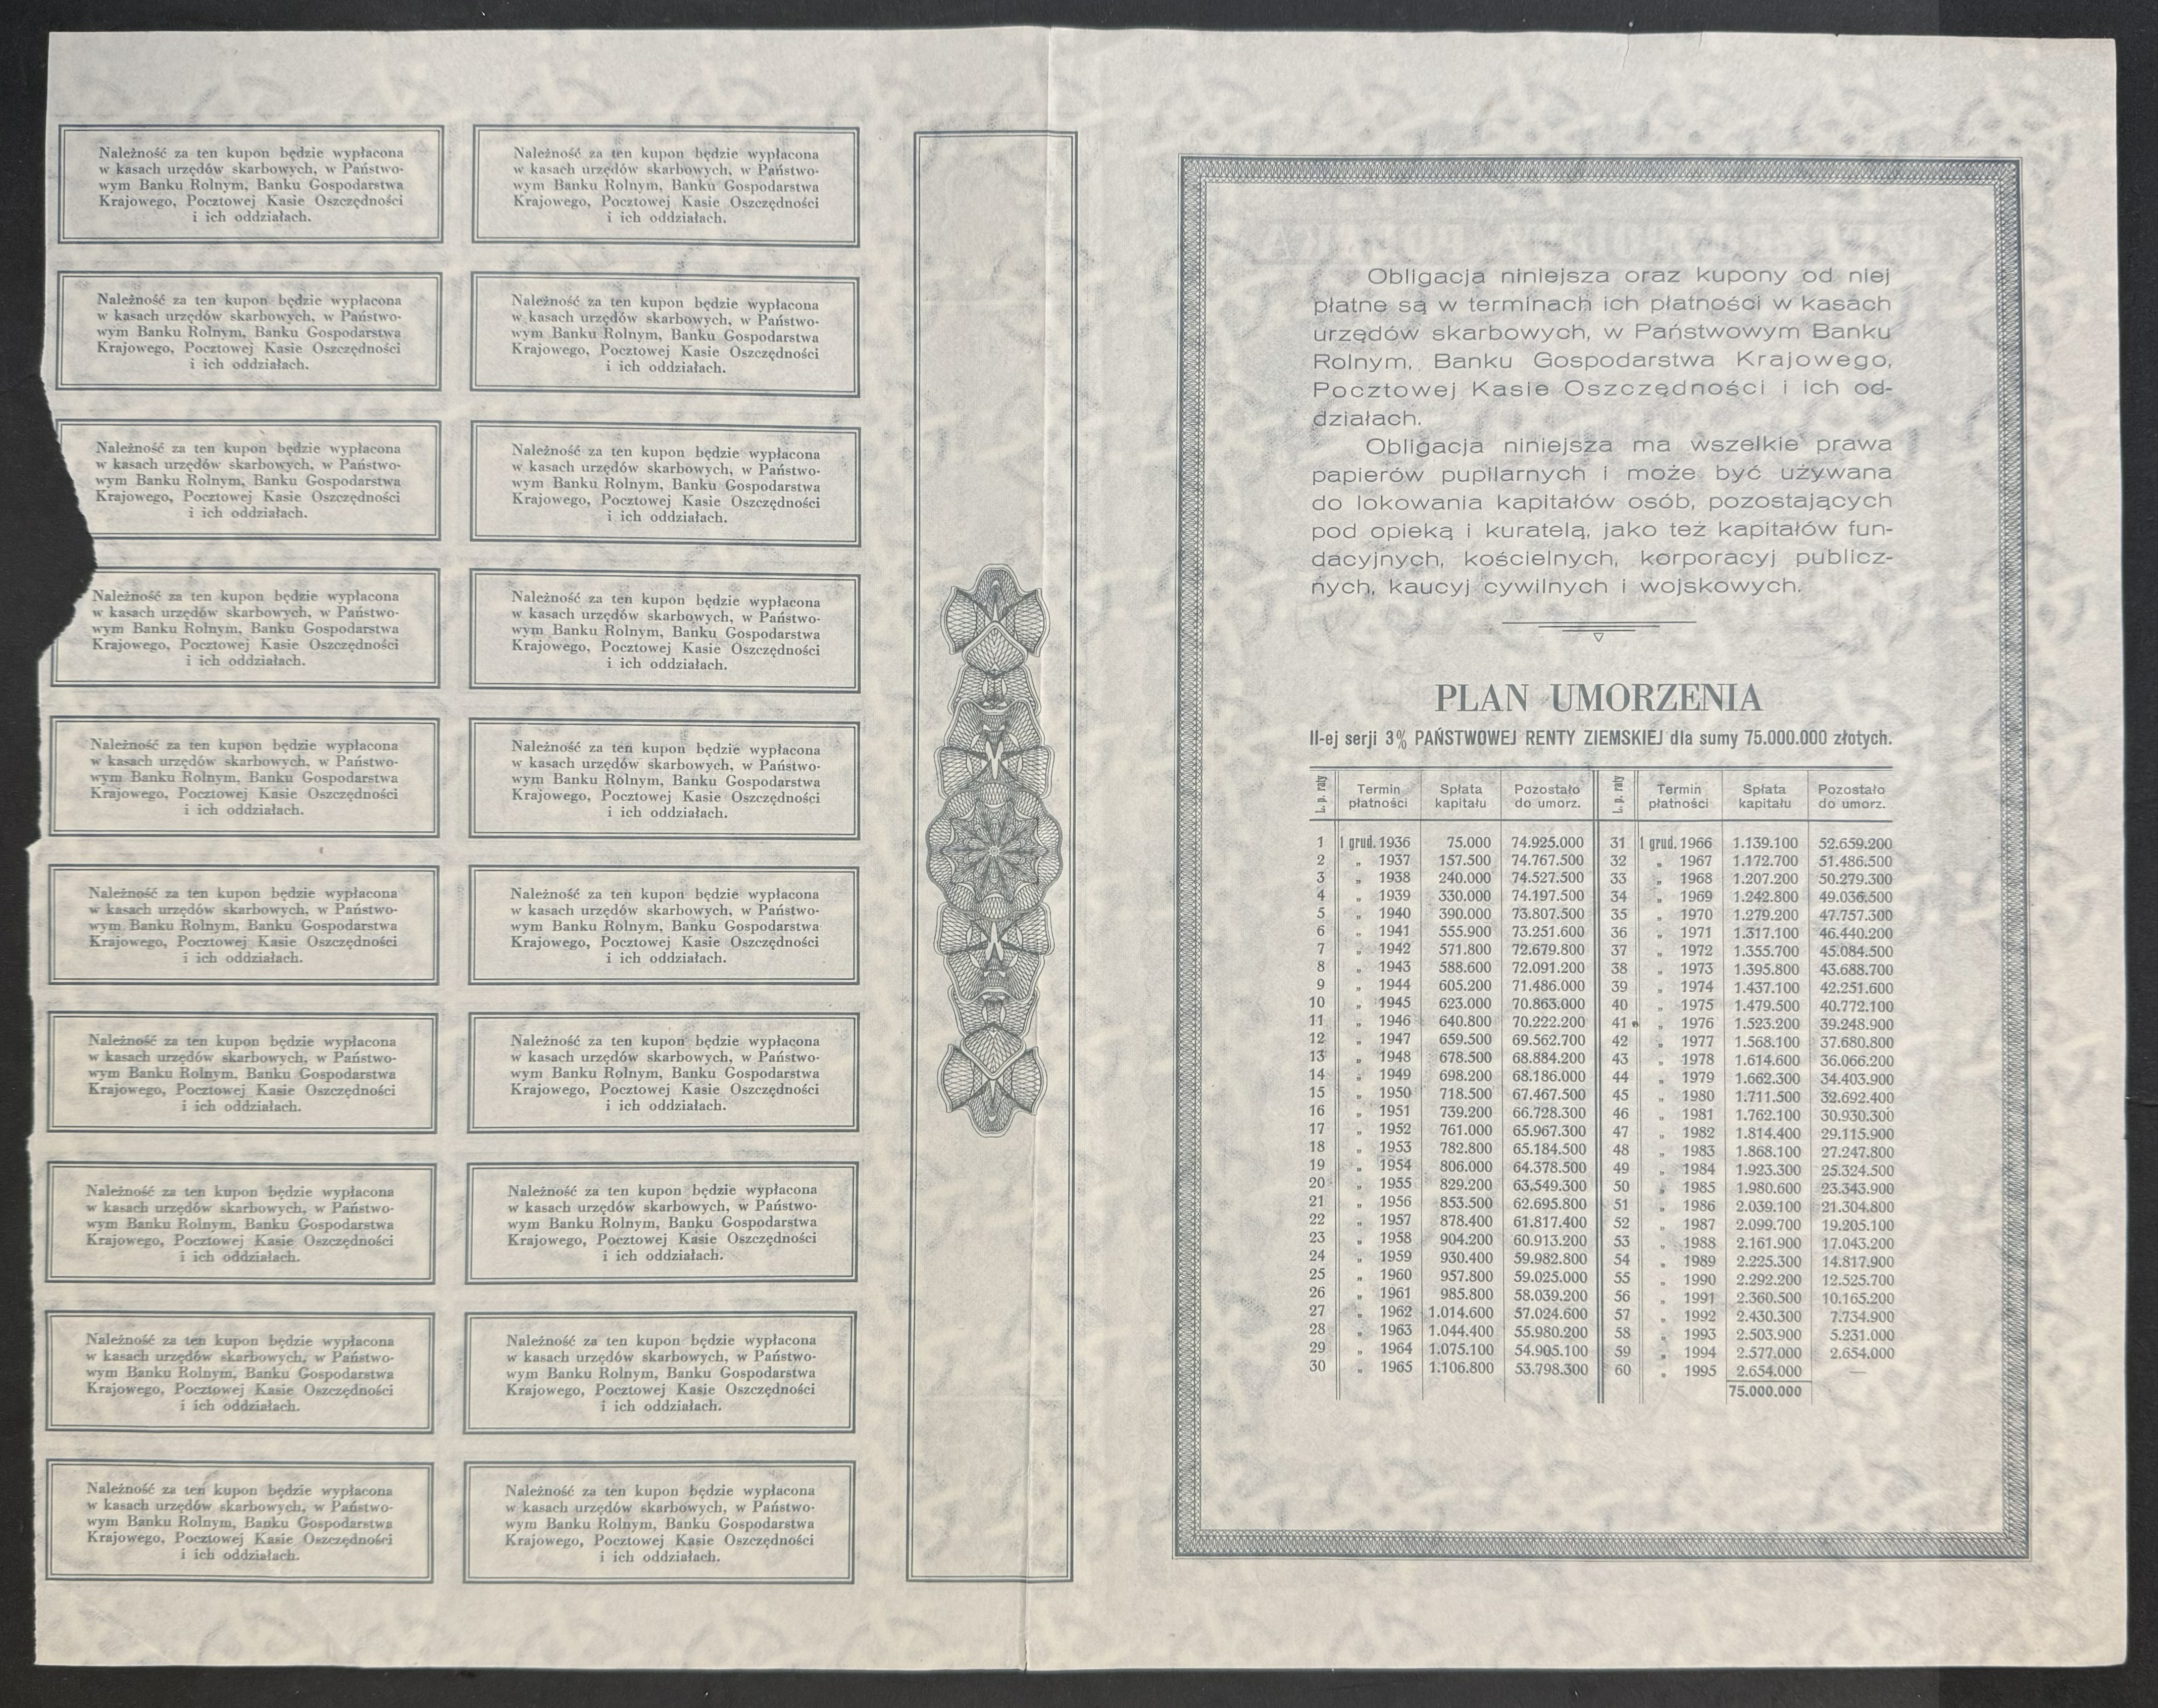 Należność za ten kupon będzie wypłacona
w kasach urzędów skarbowych, w Państwo-
wym Banku Rolnym, Banku Gospodarstwa
Krajowego, Pocztowej Kasie Oszczędności
i ich oddziałach.
Należność za ten kupon będzie wypłacona
w kasach urzędów skarbowych, w Państwo-
wym Banku Rolnym, Banku Gospodarstwa
Krajowego, Pocztowej Kasie Oszczędności
i ich oddziałach.
Należność za ten kupon będzie wypłacona
w kasach urzędów skarbowych, w Państwo-
wym Banku Rolnym, Banku Gospodarstwa
Krajowego, Pocztowej Kasie Oszczędności
i ich oddziałach.
Należność za ten kupon będzie wypłacona
w kasach urzędów skarbowych, w Państwo-
wym Banku Rolnym, Banku Gospodarstwa
Krajowego, Pocztowej Kasie Oszczędności
i ich oddziałach.
Należność za ten kupon będzie wypłacona
w kasach urzędów skarbowych, w Państwo-
wym Banku Rolnym, Banku Gospodarstwa
Krajowego, Pocztowej Kasie Oszczędności
i ich oddziałach.
Należność za ten kupon będzie wypłacona
w kasach urzędów skarbowych, w Państwo-
wym Banku Rolnym, Banku Gospodarstwa
Krajowego, Pocztowej Kasie Oszczędności
i ich oddziałach.
Należność za ten kupon będzie wypłacona
w kasach urzędów skarbowych, w Państwo-
wym Banku Rolnym, Banku Gospodarstwa
Krajowego, Pocztowej Kasie Oszczędności
i ich oddziałach.
Należność za ten kupon będzie wypłacona
w kasach urzędów skarbowych, w Państwo-
wym Banku Rolnym, Banku Gospodarstwa
Krajowego, Pocztowej Kasie Oszczędności
i ich oddziałach.
Należność za ten kupon będzie wypłacona
w kasach urzędów skarbowych, w Państwo-
wym Banku Rolnym, Banku Gospodarstwa
Krajowego, Pocztowej Kasie Oszczędności
i ich oddziałach.
Należność za ten kupon będzie wypłacona
w kasach urzędów skarbowych, w Państwo-
wym Banku Rolnym, Banku Gospodarstwa
Krajowego, Pocztowej Kasie Oszczędności
i ich oddziałach.
Należność za ten kupon będzie wypłacona
w kasach urzędów skarbowych, w Państwo-
wym Banku Rolnym, Banku Gospodarstwa
Krajowego, Pocztowej Kasie Oszczędności
i ich oddziałach.
Należność za ten kupon będzie wypłacona
w kasach urzędów skarbowych, w Państwo-
wym Banku Rolnym, Banku Gospodarstwa
Krajowego, Pocztowej Kasie Oszczędności
i ich oddziałach.
Należność za ten kupon będzie wypłacona
w kasach urzędów skarbowych, w Państwo-
wym Banku Rolnym, Banku Gospodarstwa
Krajowego, Pocztowej Kasie Oszczędności
i ich oddziałach.
Należność za ten kupon będzie wypłacona
w kasach urzędów skarbowych, w Państwo-
wym Banku Rolnym, Banku Gospodarstwa
Krajowego, Pocztowej Kasie Oszczędności
i ich oddziałach.
Należność za ten kupon będzie wypłacona
w kasach urzędów skarbowych, w Państwo-
wym Banku Rolnym, Banku Gospodarstwa
Krajowego, Pocztowej Kasie Oszczędności
i ich oddziałach.
Należność za ten kupon będzie wypłacona
w kasach urzędów skarbowych, w Państwo-
wym Banku Rolnym, Banku Gospodarstwa
Krajowego, Pocztowej Kasie Oszczędności
i ich oddziałach.
Należność za ten kupon będzie wypłacona
w kasach urzędów skarbowych, w Państwo-
wym Banku Rolnym, Banku Gospodarstwa
Krajowego, Pocztowej Kasie Oszczędności
i ich oddziałach.
Należność za ten kupon będzie wypłacona
w kasach urzędów skarbowych, w Państwo-
wym Banku Rolnym, Banku Gospodarstwa
Krajowego, Pocztowej Kasie Oszczędności
i ich oddziałach.
Należność za ten kupon będzie wypłacona
w kasach urzędów skarbowych, w Państwo-
wym Banku Rolnym, Banku Gospodarstwa
Krajowego, Pocztowej Kasie Oszczędności
i ich oddziałach.
Należność za ten kupon będzie wypłacona
w kasach urzędów skarbowych, w Państwo-
wym Banku Rolnym, Banku Gospodarstwa
Krajowego, Pocztowej Kasie Oszczędności
i ich oddziałach.
Obligacja niniejsza oraz kupony od niej
płatne są w terminach ich płatności w kasach
urzędów skarbowych, w Państwowym Banku
Rolnym, Banku Gospodarstwa Krajowego,
Pocztowej Kasie Oszczędności i ich od-
działach.
Obligacja niniejsza ma wszelkie prawa
papierów pupilarnych i może być używana
do lokowania kapitałów osób, pozostających
pod opieką i kuratelą, jako też kapitałów fun-
dacyjnych, kościelnych, korporacyj publicz-
nych, kaucyj cywilnych i wojskowych.
PLAN UMORZENIA
II-ej serji 3% PAŃSTWOWEJ RENTY ZIEMSKIEJ dla sumy 75.000.000 złotych.
L. p. raty Termin płatności Spłata kapitału Pozostało do umorz. L. p. raty Termin płatności Spłata kapitału Pozostało do umorz.
1 1 grud. 1936 75.000 74.925.000 31 1 grud. 1966 1.139.100 52.659.200
2 „ 1937 157.500 74.767.500 32 „ 1967 1.172.700 51.486.500
3 „ 1938 240.000 74.527.500 33 „ 1968 1.207.200 50.279.300
4 „ 1939 330.000 74.197.500 34 „ 1969 1.242.800 49.036.500
5 „ 1940 390.000 73.807.500 35 „ 1970 1.279.200 47.757.300
6 „ 1941 555.900 73.251.600 36 „ 1971 1.317.100 46.440.200
7 „ 1942 571.800 72.679.800 37 „ 1972 1.355.700 45.084.500
8 „ 1943 588.600 72.091.200 38 „ 1973 1.395.800 43.688.700
9 „ 1944 605.200 71.486.000 39 „ 1974 1.437.100 42.251.600
10 „ 1945 623.000 70.863.000 40 „ 1975 1.479.500 40.772.100
11 „ 1946 640.800 70.222.200 41 „ 1976 1.523.200 39.248.900
12 „ 1947 659.500 69.562.700 42 „ 1977 1.568.100 37.680.800
13 „ 1948 678.500 68.884.200 43 „ 1978 1.614.600 36.066.200
14 „ 1949 698.200 68.186.000 44 „ 1979 1.662.300 34.403.900
15 „ 1950 718.500 67.467.500 45 „ 1980 1.711.500 32.692.400
16 „ 1951 739.200 66.728.300 46 „ 1981 1.762.100 30.930.300
17 „ 1952 761.000 65.967.300 47 „ 1982 1.814.400 29.115.900
18 „ 1953 782.800 65.184.500 48 „ 1983 1.868.100 27.247.800
19 „ 1954 806.000 64.378.500 49 „ 1984 1.923.300 25.324.500
20 „ 1955 829.200 63.549.300 50 „ 1985 1.980.600 23.343.900
21 „ 1956 853.500 62.695.800 51 „ 1986 2.039.100 21.304.800
22 „ 1957 878.400 61.817.400 52 „ 1987 2.099.700 19.205.100
23 „ 1958 904.200 60.913.200 53 „ 1988 2.161.900 17.043.200
24 „ 1959 930.400 59.982.800 54 „ 1989 2.225.300 14.817.900
25 „ 1960 957.800 59.025.000 55 „ 1990 2.292.200 12.525.700
26 „ 1961 985.800 58.039.200 56 „ 1991 2.360.500 10.165.200
27 „ 1962 1.014.600 57.024.600 57 „ 1992 2.430.300 7.734.900
28 „ 1963 1.044.400 55.980.200 58 „ 1993 2.503.900 5.231.000
29 „ 1964 1.075.100 54.905.100 59 „ 1994 2.577.000 2.654.000
30 „ 1965 1.106.800 53.798.300 60 „ 1995 2.654.000 —
75.000.000